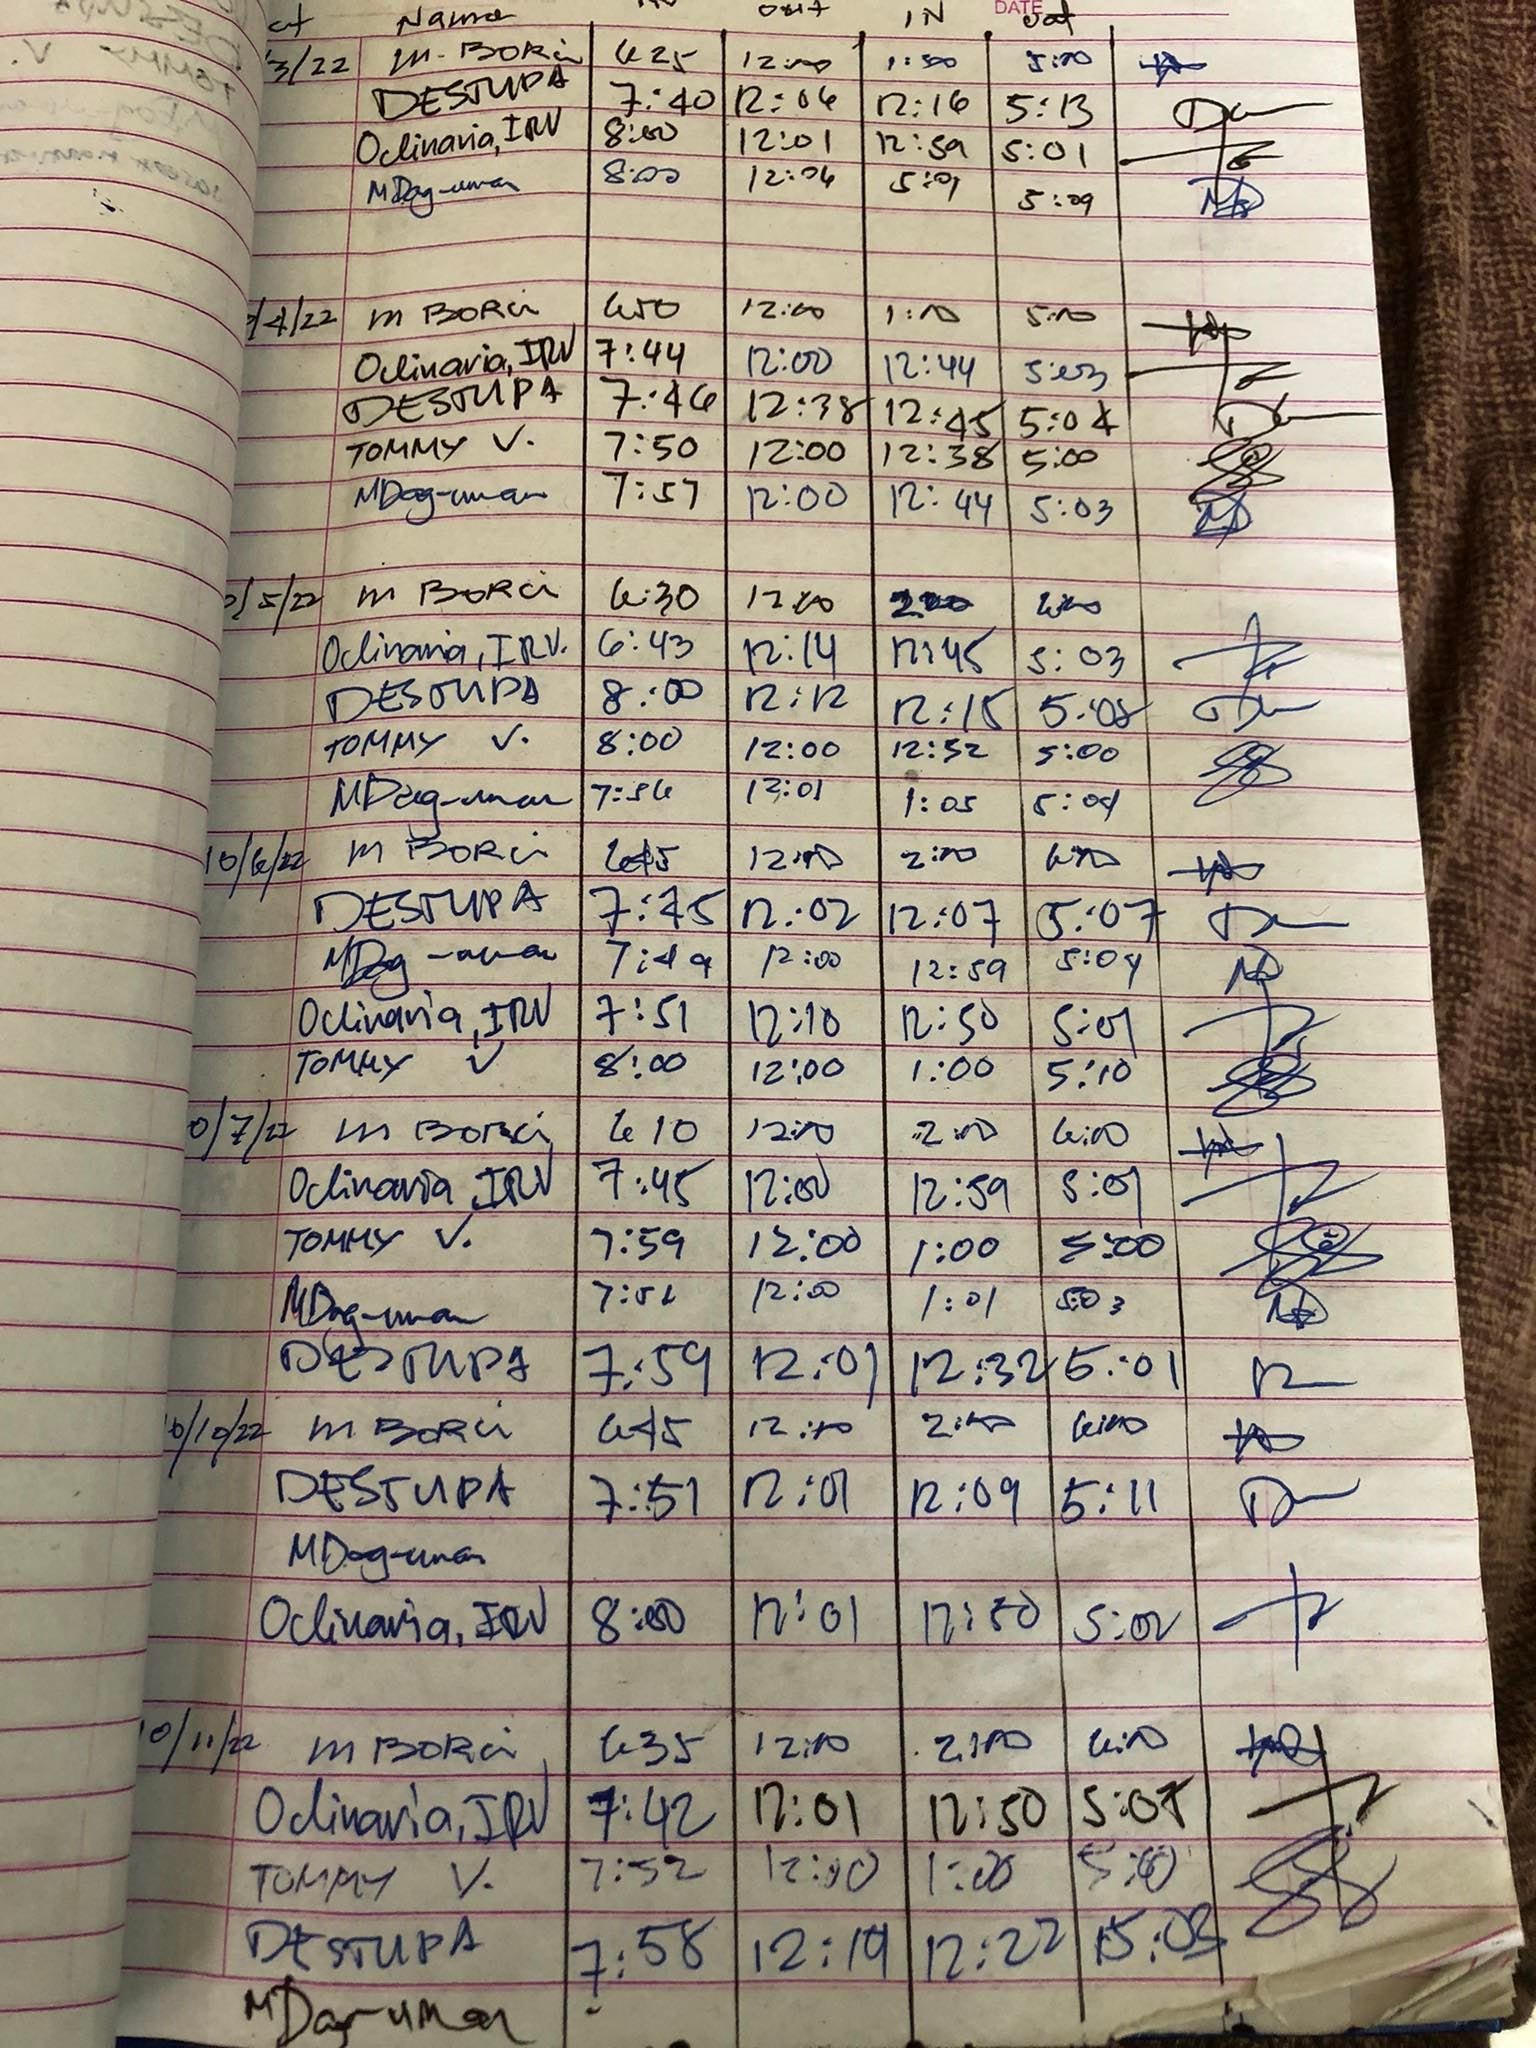 Name OUT IN DATE out
3/22 M. BORCi 625 12:00 1:00 5:00
DESTUPA 7:40 12:06 12:16 5:13
Oclinaria, IRV 8:00 12:01 12:59 5:01
MDag-uman 8:00 12:06 5:09
/4/22 M BORCi 650 12:00 1:00 5:00
Oclinaria, IRV 7:44 12:00 12:44 5:03
DESTUPA 7:46 12:38 12:45 5:04
TOMMY V. 7:50 12:00 12:38 5:00
MDag-uman 7:57 12:00 12:44 5:03
0/5/22 M BORCi 6:30 12:00 2:00 6:00
Oclinaria, IRV. 6:43 12:14 12:45 5:03
DESTUPA 8:00 12:12 12:15 5:08
TOMMY V. 8:00 12:00 12:52 5:00
MDag-uman 7:56 12:01 1:05 5:04
10/6/22 M BORCi 645 12:00 2:00 6:00
DESTUPA 7:45 12:02 12:07 5:07
MDag-uman 7:49 12:00 12:59 5:04
Oclinaria, IRV 7:51 12:10 12:50 5:01
TOMMY V 8:00 12:00 1:00 5:10
0/7/22 M BORCi 610 12:00 2:00 6:00
Oclinaria, IRV 7:45 12:00 12:59 5:01
TOMMY V. 7:59 12:00 1:00 5:00
MDag-uman 12:00 1:01 5:03
DESTUPA 7:59 12:01 12:32 5:01
0/10/22 M BORCi 645 12:00 2:00 6:00
DESTUPA 7:51 12:01 12:09 5:11
MDag-uman
Oclinaria, IRV 8:00 12:01 12:50 5:02
10/11/22 M BORCi 635 12:00 2:00 6:00
Oclinaria, IRV 7:42 12:01 12:50
TOMMY V. 7:52 12:00 1:00 5:00
DESTUPA 7:58 12:19 12:22 5:03
MDag-uman